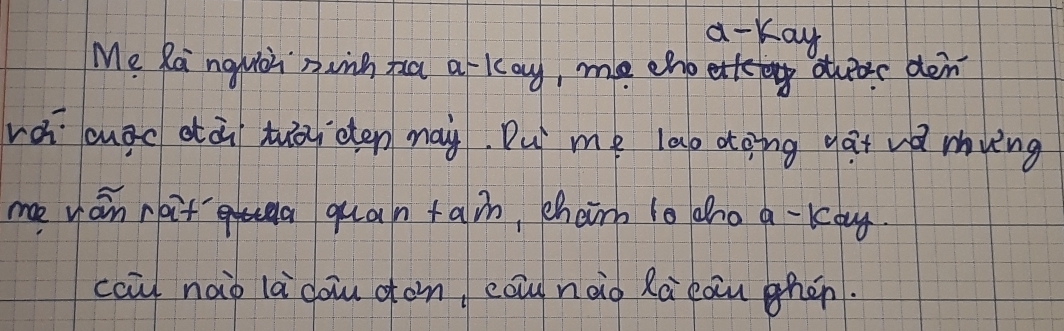 a-Kay
Mẹ là người sinh ra a-Kay, mẹ cho được đến
với cuộc đời tươi đẹp này. Dù mẹ lao động vất vả nhưng
mẹ vẫn rất quan tâm, chăm lo cho a-Kay.
câu nào là câu đơn, câu nào là câu ghép.